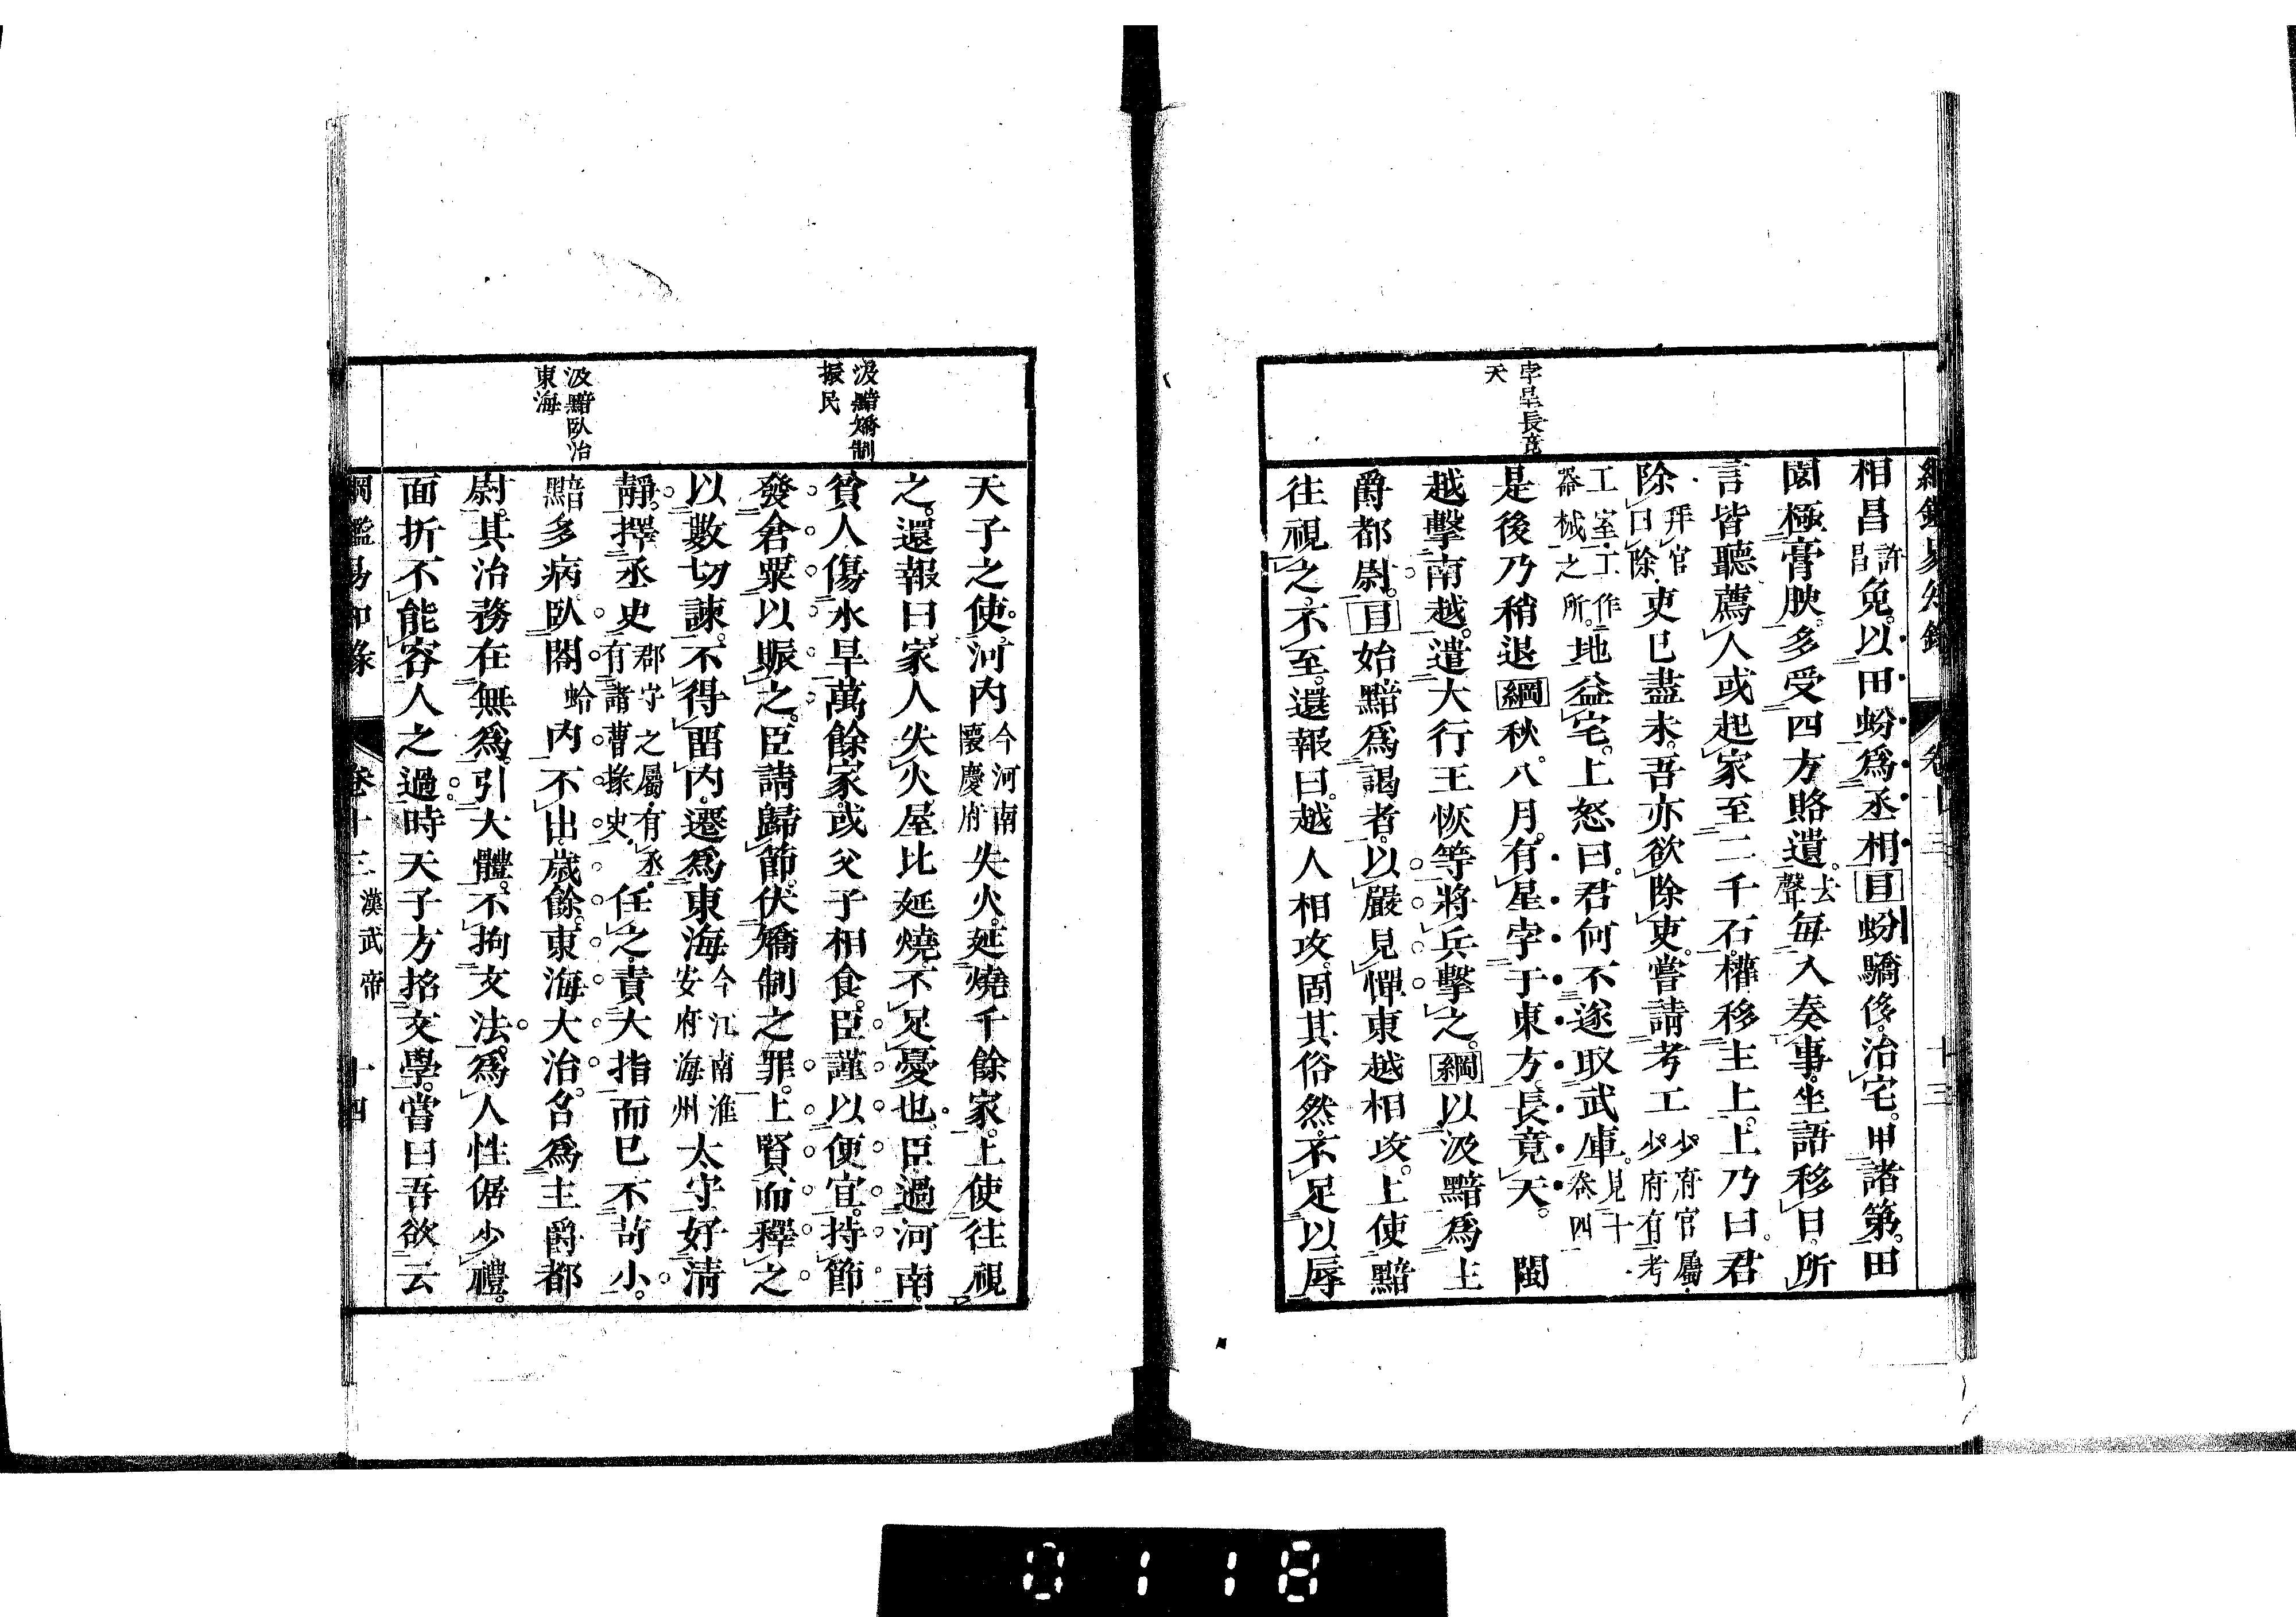 綱鑑易知錄 卷十三 十三
孛星長竟
天
相昌許昌免。以田蚡爲丞相目蚡驕侈。治宅。甲諸第。田
園極膏腴。多受四方賂遺。去聲每入奏事。坐語移日。所
言皆聽。薦人或起家至二千石。權移主上。上乃曰。君
除拜官曰除吏已盡未。吾亦欲除吏。嘗請考工少府官屬。少府有考
工室。工作器械之所。地益宅。上怒曰。君何不遂取武庫。見十一卷四
是後乃稍退綱秋。八月。有星孛于東方。長竟天。 閩
越擊南越。遣大行王恢等將兵擊之。綱以汲黯爲主
爵都尉。目始黯爲謁者。以嚴見憚東越相攻。上使黯
往視之。不至。還報曰。越人相攻。固其俗然。不足以辱
汲黯矯制
振民
汲黯臥治
東海
天子之使。河內今河南懷慶府失火。延燒千餘家。上使往視
之。還報曰。家人失火屋比延燒。不足憂也。臣過河南。
貧人傷水旱萬餘家。或父子相食。臣謹以便宜。持節
發倉粟以賑之。臣請歸節。伏矯制之罪。上賢而釋之
以數切諫。不得畱內。遷爲東海今江南淮安府海州太守好淸
靜。擇丞史郡守之屬。有丞。有諸曹掾史。任之。責大指而已不苛小。
黯多病。臥閤蛤內不出。歲餘。東海大治。召爲主爵都
尉。其治務在無爲。引大體。不拘文法。爲人性倨少禮。
面折不能容人之過。時天子方招文學。嘗曰吾欲云
綱鑑易知錄 卷十三 漢武帝 十四
0118